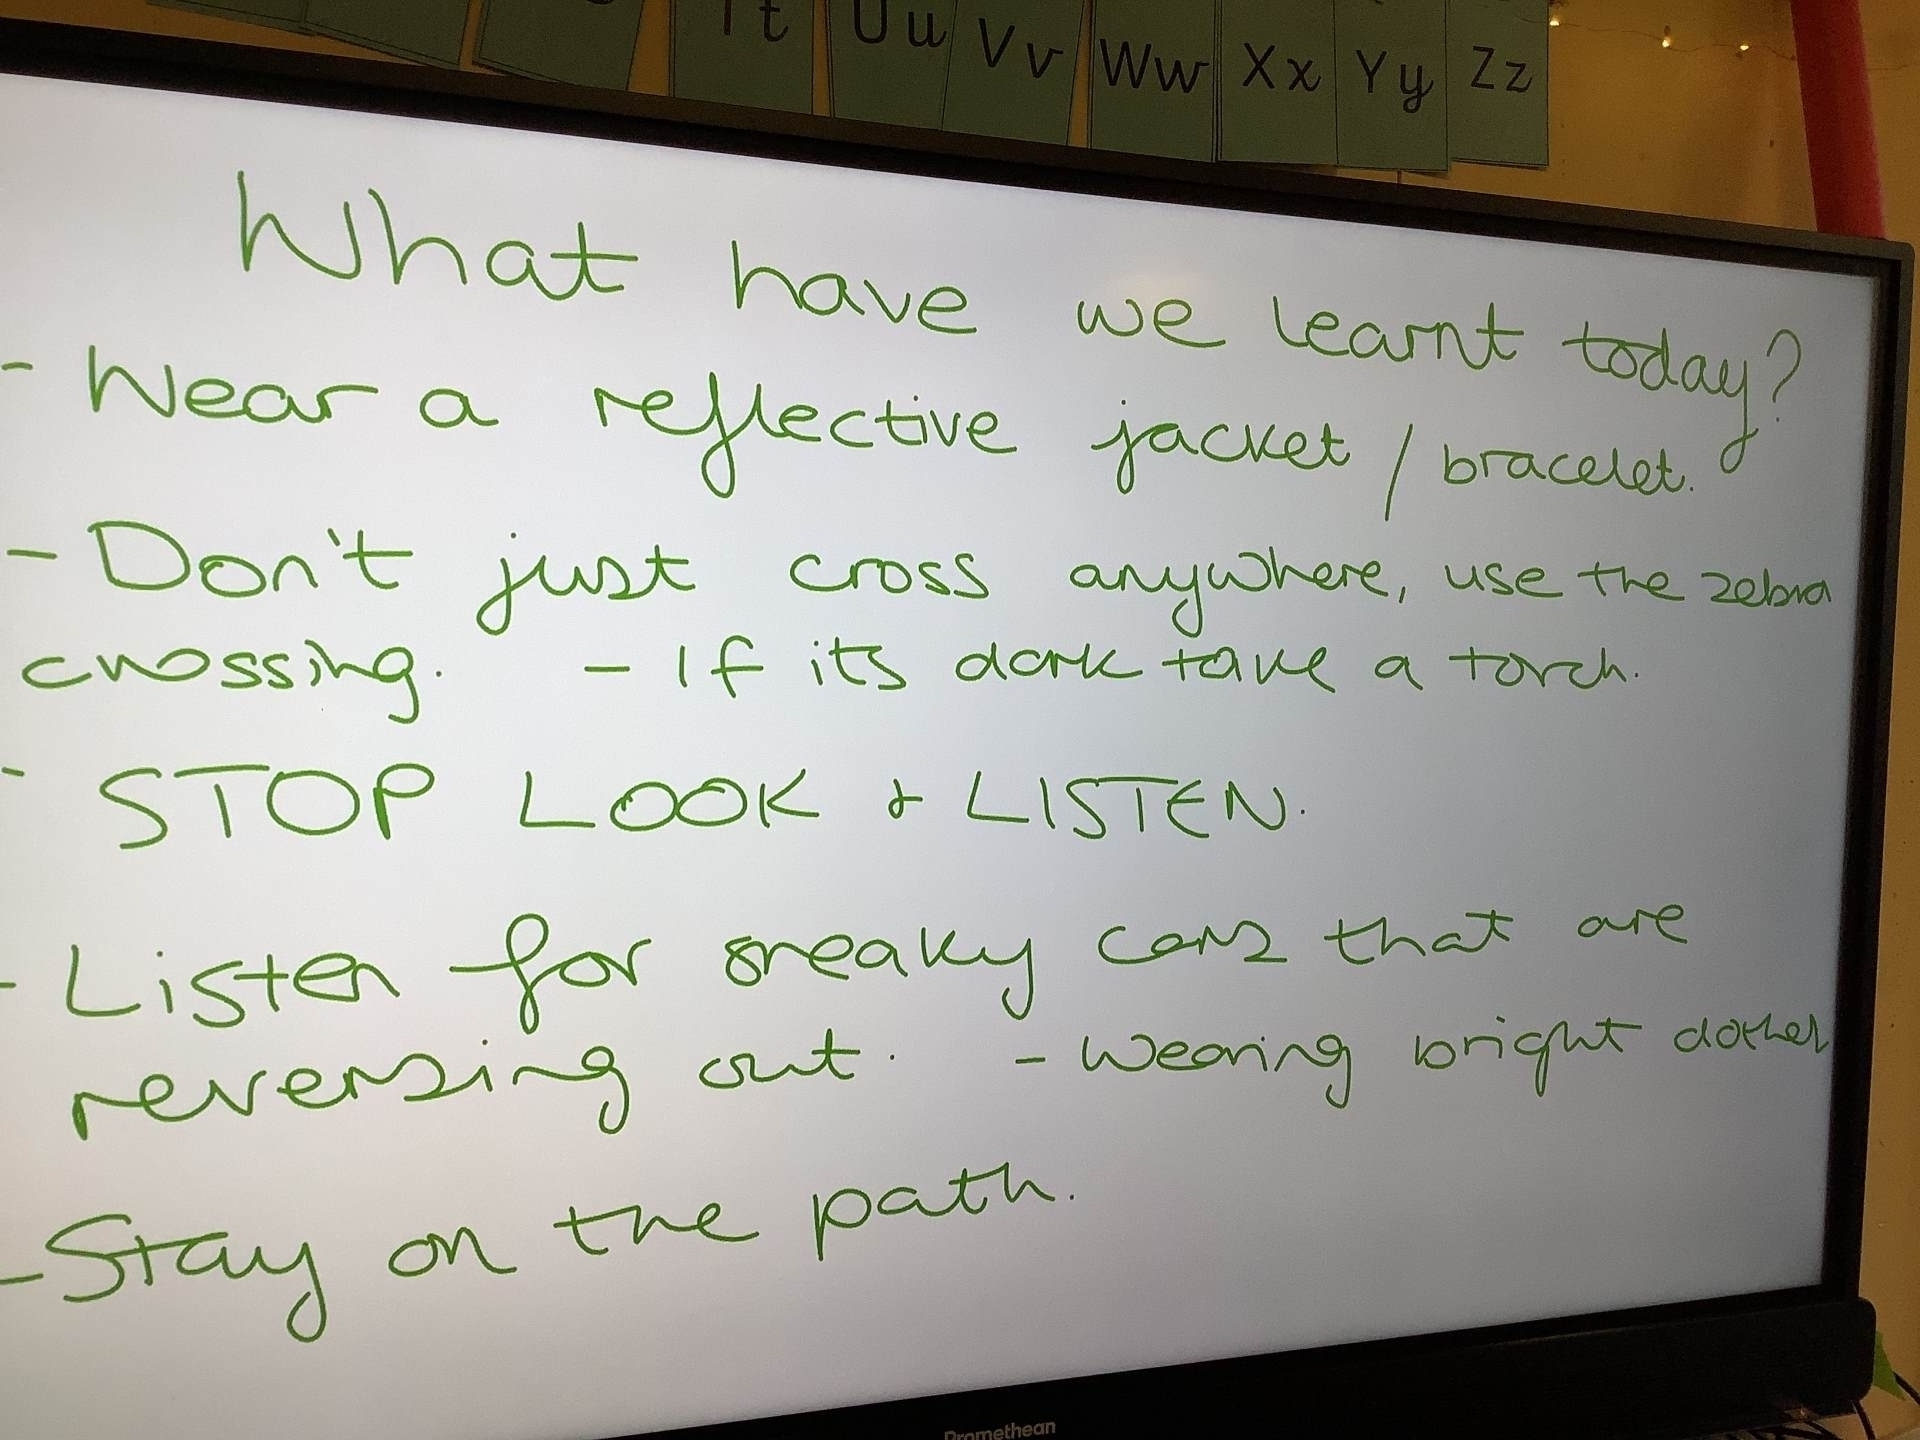 Tt Uu Vv Ww Xx Yy Zz
What have we learnt today?
- Wear a reflective jacket / bracelet.
- Don't just cross anywhere, use the zebra
crossing. - If its dark take a torch.
- STOP LOOK & LISTEN.
- Listen for sneaky cars that are
reversing out. - Wearing bright clothes
- Stay on the path.
Promethean